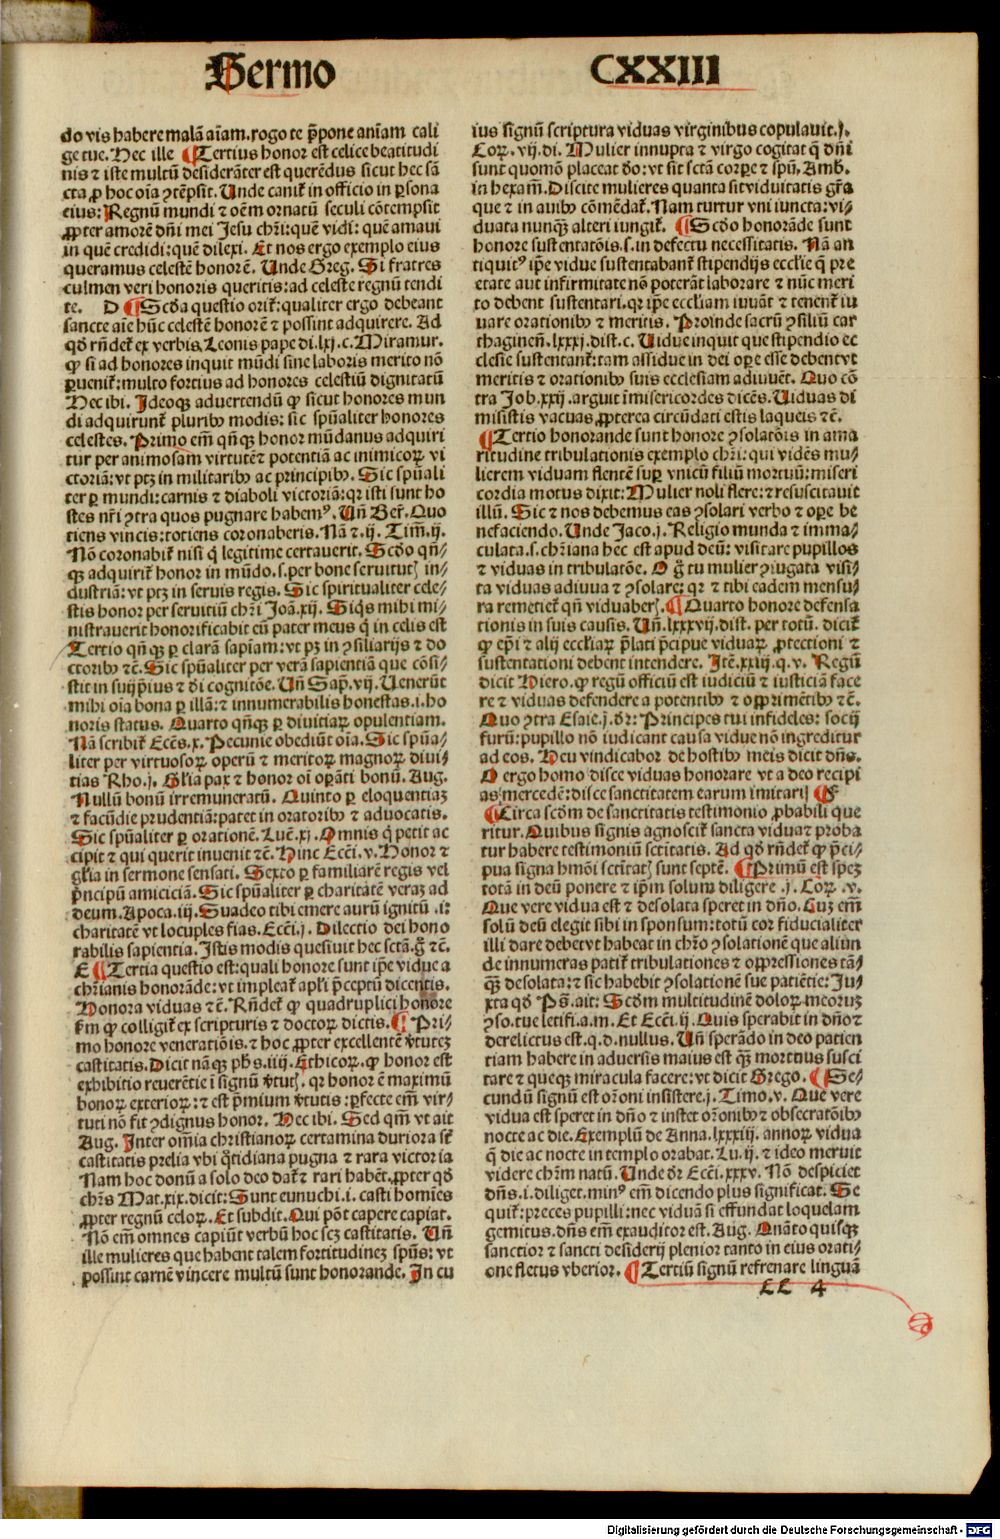 Sermo CXXIII
do vis habere malā aīam. rogo te p̄pone aniam cali
ge tue. Hec ille ¶ Tertius honor est celice beatitudi
nis ⁊ iste multū desiderāter est querēdus sicut hec sā
cta ꝓ hoc oīa ꝯtēpsit. Unde canit᷑ in officio in ꝑsona
eius: Regnū mundi ⁊ oēm ornatū seculi cōtempsit
ꝓpter amorē dn̄i mei Jesu chr̄i: quē vidi: quē amaui
in quē credidi: quē dilexi. Et nos ergo exemplo eius
queramus celestē honorē. Unde Greg. Si fratres
culmen veri honoris queritis: ad celeste regnū tendi
te. D ¶ Scd̄a questio orit᷑: qualiter ergo debeant
sancte aīe hūc celestē honorē ⁊ possint adquirere. Ad
qd̄ rn̄det᷑ ex verbis Leonis pape di. lxj. c. Miramur.
ꝙ si ad honores inquit mūdi sine laboris merito nō
ꝑuenit᷑: multo fortius ad honores celestiū dignitatū
Hec ibi. Ideoqꝫ aduertendū ꝙ sicut honores mun
di adquirunt᷑ pluribꝰ modis: sic spūaliter honores
celestes. Primo em̄ qn̄qꝫ honor mūdanus adquiri
tur per animosam virtutē ⁊ potentiā ac inimicoꝝ vi
ctoriā: vt ptꝫ in militaribꝰ ac principibꝰ. Sic spūali
ter ꝑ mundi: carnis ⁊ diaboli victoriā: qr isti sunt ho
stes nr̄i ꝯtra quos pugnare habemꝰ. Un̄ Ber̄. Quo
tiens vincis: totiens coronaberis. Nā ⁊ .ij. Tim̄. ij.
Nō coronabit᷑ nisi q̇ legitime certauerit. Scd̄o qn̄⸗
qꝫ adquirit᷑ honor in mūdo. s. per bone seruitutꝭ in⸗
dustriā: vt ptꝫ in seruis regis. Sic spiritualiter cele⸗
stis honor per seruitiū chr̄i Joā. xij. Siqͥs mihi mi⸗
nistrauerit honorificabit eū pater meus q̇ in celis est
Tertio qn̄qꝫ ꝑ clarā sapiam: vt pꝫ in ꝯsiliarijs ⁊ do
ctoribꝰ ⁊c̄. Sic spūaliter per verā sapientiā que cōsi⸗
stit in suijpsius ⁊ dei cognitōe. Un̄ Sap̄. vij. Uenerūt
mihi oīa bona ꝑ illā: ⁊ innumerabilis honestas. i. ho
noris status. Quarto qn̄qꝫ ꝑ diuitiaꝝ opulentiam.
Nā scribit᷑ Ecēs. x. Pecunie obediūt oīa. Sic spūa⸗
liter per virtuosoꝝ operū ⁊ meritoꝝ magnoꝝ diui⸗
tias Rho. j. Gl̄ia pax ⁊ honor oī oꝑati bonū. Aug.
Nullū bonū irremuneratū. Quinto ꝑ eloquentiaꝫ
⁊ facūdie prudentiā: patet in oratoribꝰ ⁊ aduocatis.
Sic spūaliter ꝑ orationē. Luē. xj. Omnis q̇ petit ac
cipit ⁊ qui querit inuenit ⁊c̄. Hinc Ecc̄i. v. Honor ⁊
gl̄ia in sermone sensati. Sexto ꝑ familiarē regis vel
p̄ncipū amiciciā. Sic spūaliter ꝑ charitatē veraꝫ ad
deum. Apoca. iij. Suadeo tibi emere aurū ignitū .i:
charitatē vt locuples fias. Ecc̄i. j. Dilectio dei hono
rabilis sapientia. Istis modis quesiuit hec sctā. g̊ ⁊c̄.
E ¶ Tertia questio est: quali honore sunt ip̄e vidue a
chr̄ianis honorāde: vt impleat᷑ apl̄i p̄ceptū dicentis.
Honora viduas ⁊c̄. Rn̄det᷑ ꝙ quadruplici honore
ẜm ꝙ colligit᷑ ex scripturis ⁊ doctoꝝ dictis. ¶ Pri⸗
mo honore venerationis. ⁊ hoc ꝓpter excellentē v̄tuteꝫ
castitatis. Dicit nāqꝫ ph̄s. iiij. Ethicoꝝ. ꝙ honor est
exhibitio reuerētie ī signū v̄tutꝭ. qr honor ē maximū
honoꝝ exterioꝝ: ⁊ est p̄mium v̄tutis: ꝑfecte em̄ vir⸗
tuti nō fit ꝯdignus honor. Hec ibi. Sed qm̄ vt ait
Aug. Inter om̄ia christianoꝝ certamina duriora sūt
castitatis prelia vbi q̇tidiana pugna ⁊ rara victoria
Nam hoc donū a solo deo dat᷑ ⁊ rari habēt. ꝓpter qd̄
chr̄s Mat. xix. dicit: Sunt eunuchi. i. casti homīes
ꝓpter regnū celoꝝ. Et subdit. Qui pōt capere capiat.
Nō em̄ omnes capiūt verbū hoc scꝫ castitatis. Un̄
ille mulieres que habent talem fortitudineꝫ spūs: vt
possint carnē vincere multū sunt honorande. In cu
ius signū scriptura viduas virginibus copulauit. j.
Coꝝ. vij. di. Mulier innupta ⁊ virgo cogitat q̄ dn̄i
sunt quomō placeat deo: vt sit sctā corꝑe ⁊ spū. Amb.
in hexam̄. Discite mulieres quanta sit viduitatis gr̄a
que ⁊ in auibꝰ cōmēdat᷑. Nam turtur vni iuncta: vi⸗
duata nunqꝫ alteri iungit᷑. ¶ Scd̄o honorāde sunt
honore sustentatōis. s. in defectu necessitatis. Nā an
tiquitꝰ ip̄e vidue sustentabant᷑ stipendijs eccl̄ie q̄ pre
etate aut infirmitate nō poterāt laborare ⁊ nūc meri
to debent sustentari. qr ip̄e eccl̄iam iuuāt ⁊ tenent᷑ iu
uare orationibꝰ ⁊ meritis. Proinde sacrū ꝯsiliū car
thaginen̄. lxxxj. dist. c. Uidue inquit que stipendio ec
clesie sustentant᷑: tam assidue in dei oꝑe esse debent vt
meritis ⁊ orationibꝰ suis ecclesiam adiuuēt. Quo cō
tra Job. xxij. arguit īmisericordes dicēs. Uiduas di
misistis vacuas. ꝓpterea circūdati estis laqueis ⁊c̄.
¶ Tertio honorande sunt honore ꝯsolatōis in ama
ritudine tribulationis exemplo chr̄i: qui vidēs mu⸗
lierem viduam flentē suꝑ vnicū filiū mortuū: miseri
cordia motus dixit: Mulier noli flere: ⁊ resuscitauit
illū. Sic ⁊ nos debemus eas ꝯsolari verbo ⁊ oꝑe be
nefaciendo. Unde Jaco. j. Religio munda ⁊ imma⸗
culata. s. chr̄iana hec est apud deū: visitare pupillos
⁊ viduas in tribulatōe. O g̊ tu mulier ꝯiugata visi⸗
ta viduas adiuua ⁊ ꝯsolare: qr ⁊ tibi eadem mensu⸗
ra remetiet᷑ qn̄ viduaberꝭ. ¶ Quarto honore defensa
tionis in suis causis. Un̄. lxxxvij. dist. per totū. dicit᷑
ꝙ ep̄i ⁊ alij eccl̄iaꝝ p̄lati p̄cipue viduaꝝ ꝓtectioni ⁊
sustentationi debent intendere. Itē. xxiij. q. v. Regū
dicit Hiero. ꝙ regū officiū est iudiciū ⁊ iusticiā face
re ⁊ viduas defendere a potentibꝰ ⁊ opprimētibꝰ ⁊c̄.
Quo ꝯtra Esaie. j. dr̄: Principes tui infideles: socij
furū: pupillo nō iudicant causa vidue nō ingreditur
ad eos. Heu vindicabor de hostibꝰ meis dicit dn̄s.
O ergo homo disce viduas honorare vt a deo recipi
as mercedē: disce sanctitatem earum imitari ¶ F
¶ Circa scd̄m de sanctitatis testimonio ꝓbabili que
ritur. Quibus signis agnoscit᷑ sancta vidua ⁊ proba
tur habere testimoniū sctitatis. Ad qd̄ rn̄det᷑ ꝙ p̄ci⸗
pua signa hmōi sctitatꝭ sunt septē. ¶ Primū est speꝫ
totā in deū ponere ⁊ ip̄m solum diligere .j. Coꝝ. v.
Que vere vidua est ⁊ desolata speret in dn̄o. Cuꝫ em̄
solū deū elegit sibi in sponsum: totū cor fiducialiter
illi dare debet vt habeat in chr̄o ꝯsolationē que aliun
de innumeras patit᷑ tribulationes ⁊ oppressiones tā⸗
qꝫ desolata: ⁊ sic habebit ꝯsolationē sue patiētie: Ju⸗
xta qd̄ Ps̄. ait: Scd̄m multitudinē doloꝝ meoruꝫ
ꝯso. tue letifi. a. m. Et Ecc̄i. ij. Quis sperabit in dn̄o ⁊
derelictus est. q. d. nullus. Un̄ sperādo in deo patien
tiam habere in aduersis maius est qꝫ mortuus susci
tare ⁊ queqꝫ miracula facere: vt dicit Grego. ¶ Se⸗
cundū signū est or̄oni insistere. j. Timo. v. Que vere
vidua est speret in dn̄o ⁊ instet or̄onibꝰ ⁊ obsecratōibꝰ
nocte ac die. Exemplū de Anna. lxxxiij. annoꝝ vidua
q̄ die ac nocte in templo orabat. Lu. ij. ⁊ ideo meruit
videre chr̄m natū. Unde dr̄ Ecc̄i. xxxv. Nō despiciet
dn̄s. i. diliget. minꝰ em̄ dicendo plus significat. Se
quit᷑: preces pupilli: nec viduā si effundat loquelam
gemitus. dn̄s em̄ exauditor est. Aug. Quāto quisqꝫ
sanctior ⁊ sancti desiderij plenior tanto in eius orati⸗
one fletus vberior. ¶ Tertiū signū refrenare linguā
LL 4
Digitalisierung gefördert durch die Deutsche Forschungsgemeinschaft - DFG